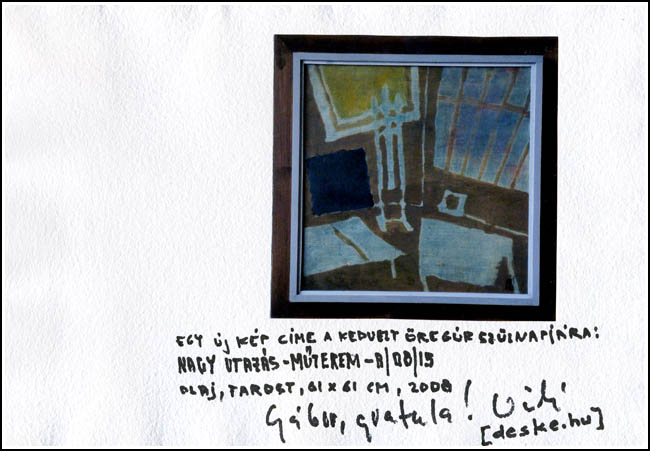 EGY ÚJ KÉP CÍME A KEDVELT ÖREGÚR SZÜLNAPJÁRA:
NAGY UTAZÁS-MŰTEREM-A/08/15
OLAJ, FAROST, 61 X 61 CM, 2008
Gábor, gratula!
[deske.hu]